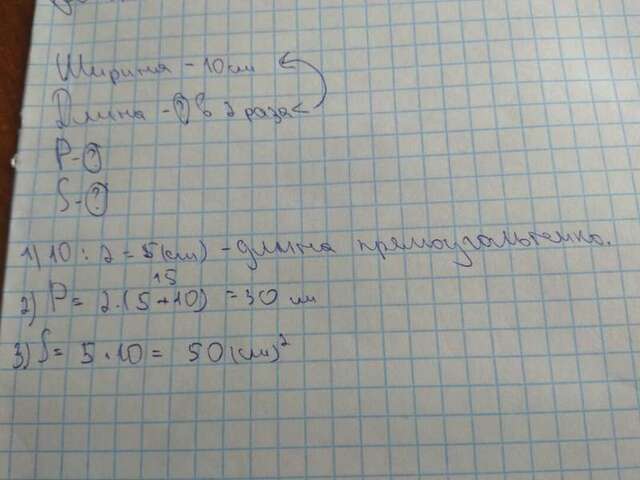 Ширина - 10 см
Длина - ? в 2 раза <
P - ?
S - ?
1) 10 : 2 = 5 (см) - длина прямоугольника.
15
2) P = 2 · (5 + 10) = 30 см
3) S = 5 · 10 = 50 (см)²